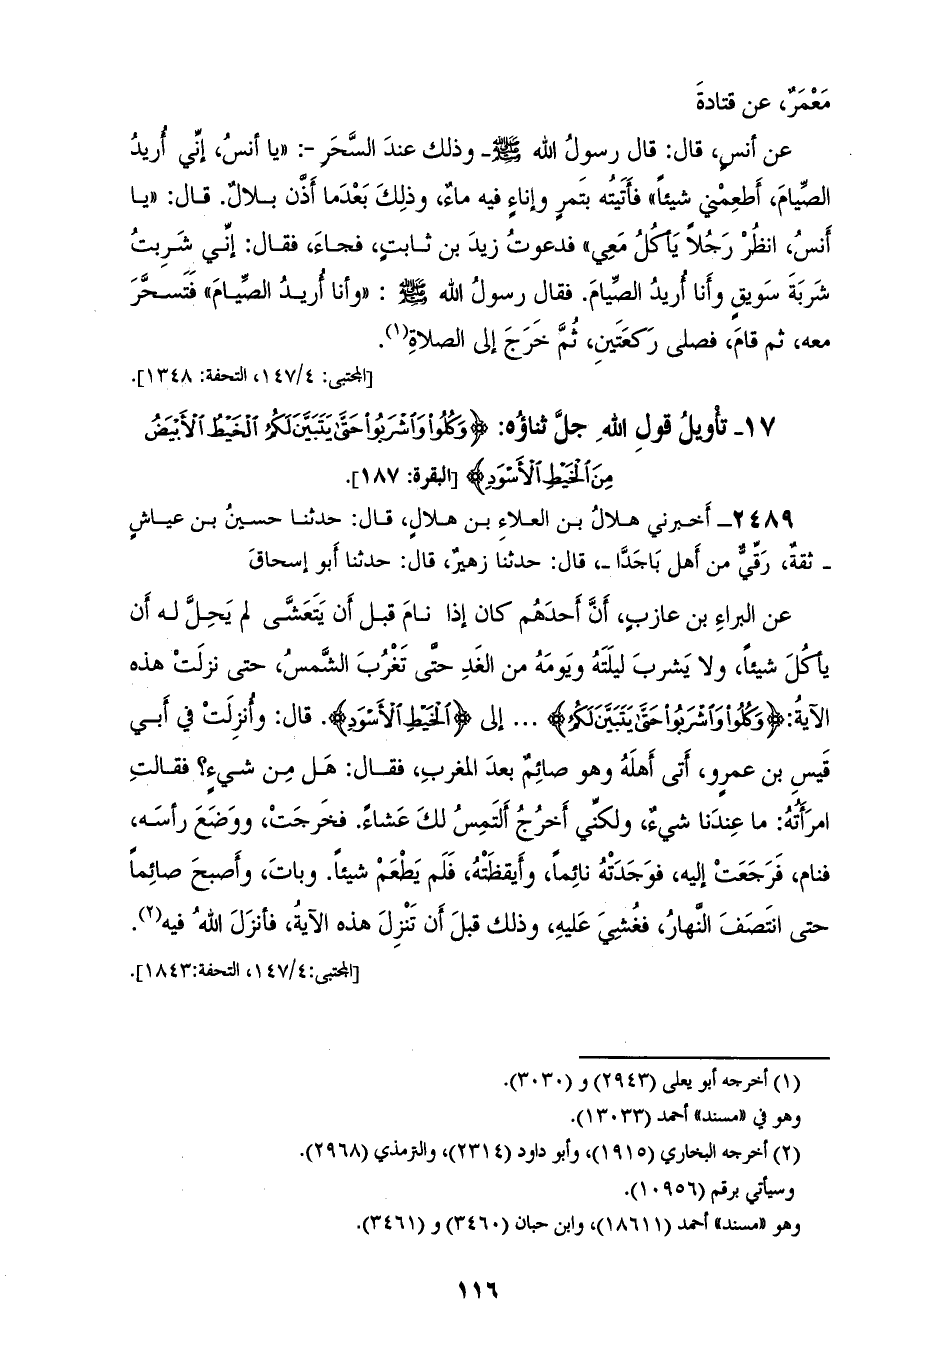 مَعْمَرٌ، عن قتادةَ
عن أنسٍ، قال: قال رسولُ الله ﷺ ـ وذلك عندَ السَّحَرِ -: «يا أنسُ، إنِّي أُريدُ
الصِّيامَ، أَطعِمْني شيئاً» فأَتيتُه بتَمرٍ وإناءٍ فيه ماءٌ، وذلِكَ بَعْدَما أَذَّن بـلالٌ. قـال: «يـا
أَنسُ، انظُرْ رَجُلاً يَأكُلُ مَعِي» فدعوتُ زيدَ بن ثـابتٍ، فجـاءَ، فقـال: إنِّـي شَـرِبتُ
شَربَةَ سَويقٍ وأَنا أُريدُ الصِّيامَ. فقال رسولُ الله ﷺ : «وأنا أُريـدُ الصِّيـامَ» فَتَسـحَّرَ
معه، ثم قامَ، فصلى رَكعَتَينِ، ثُمَّ خَرَجَ إلى الصلاةِ(١).
[المجتبى: ١٤٧/٤، التحفة: ١٣٤٨].
١٧ـ تأويلُ قولِ اللهِ جلَّ ثناؤُه: ﴿وَكُلُوا۟ وَٱشْرَبُوا۟ حَتَّىٰ يَتَبَيَّنَ لَكُمُ ٱلْخَيْطُ ٱلْأَبْيَضُ
مِنَ ٱلْخَيْطِ ٱلْأَسْوَدِ﴾ [البقرة: ١٨٧].
٢٤٨٩ـ أَخـبرني هـلالُ بـن العـلاءِ بـن هـلالٍ، قـال: حدثنـا حسـينُ بـن عيـاشٍ
ـ ثقةٌ، رَقِّيٌّ من أهل بَاجَدَّا ـ، قال: حدثنا زهيرٌ، قال: حدثنا أبو إسحاقَ
عن البراءِ بن عازبٍ، أَنَّ أَحدَهُم كان إذا نـامَ قبـل أن يَتَعَشَّـى لم يَحِـلَّ لـه أن
يأكُلَ شيئاً، ولا يَشربَ ليلَتَهُ ويَومَهُ من الغَدِ حتَّى تَغْرُبَ الشَّمسُ، حتى نزلَتْ هذه
الآيةُ: ﴿وَكُلُوا۟ وَٱشْرَبُوا۟ حَتَّىٰ يَتَبَيَّنَ لَكُمُ﴾ ... إلى ﴿ٱلْخَيْطِ ٱلْأَسْوَدِ﴾. قال: وأُنزِلَتْ في أَبـي
قَيسِ بن عمرٍو، أَتى أَهلَهُ وهو صائِمٌ بعدَ المغربِ، فقـال: هَـل مِـن شـيءٍ؟ فقـالتِ
امرَأَتُهُ: ما عِندَنا شيءٌ، ولكنِّي أَخرُجُ أَلتَمِسُ لكَ عَشاءً. فخَرجَتْ، ووَضَعَ رأسَـه،
فنام، فَرَجَعَتْ إليه، فوَجَدَتْهُ نائِماً، وأَيقظَتْهُ، فَلَم يَطْعَمْ شيئاً. وبـاتَ، وأَصبحَ صائِماً
حتى انتَصَفَ النَّهارُ، فغُشِيَ عَليهِ، وذلك قبلَ أن تَنْزِلَ هذه الآيةُ، فأَنزَلَ اللهُ فيه(٢).
[المجتبى:١٤٧/٤، التحفة:١٨٤٣].
(١) أخرجه أبو يعلى (٢٩٤٣) و (٣٠٣٠).
وهو في «مسند» أحمد (١٣٠٣٣).
(٢) أخرجه البخاري (١٩١٥)، وأبو داود (٢٣١٤)، والترمذي (٢٩٦٨).
وسيأتي برقم (١٠٩٥٦).
وهو «مسند» أحمد (١٨٦١١)، وابن حبان (٣٤٦٠) و (٣٤٦١).
١١٦